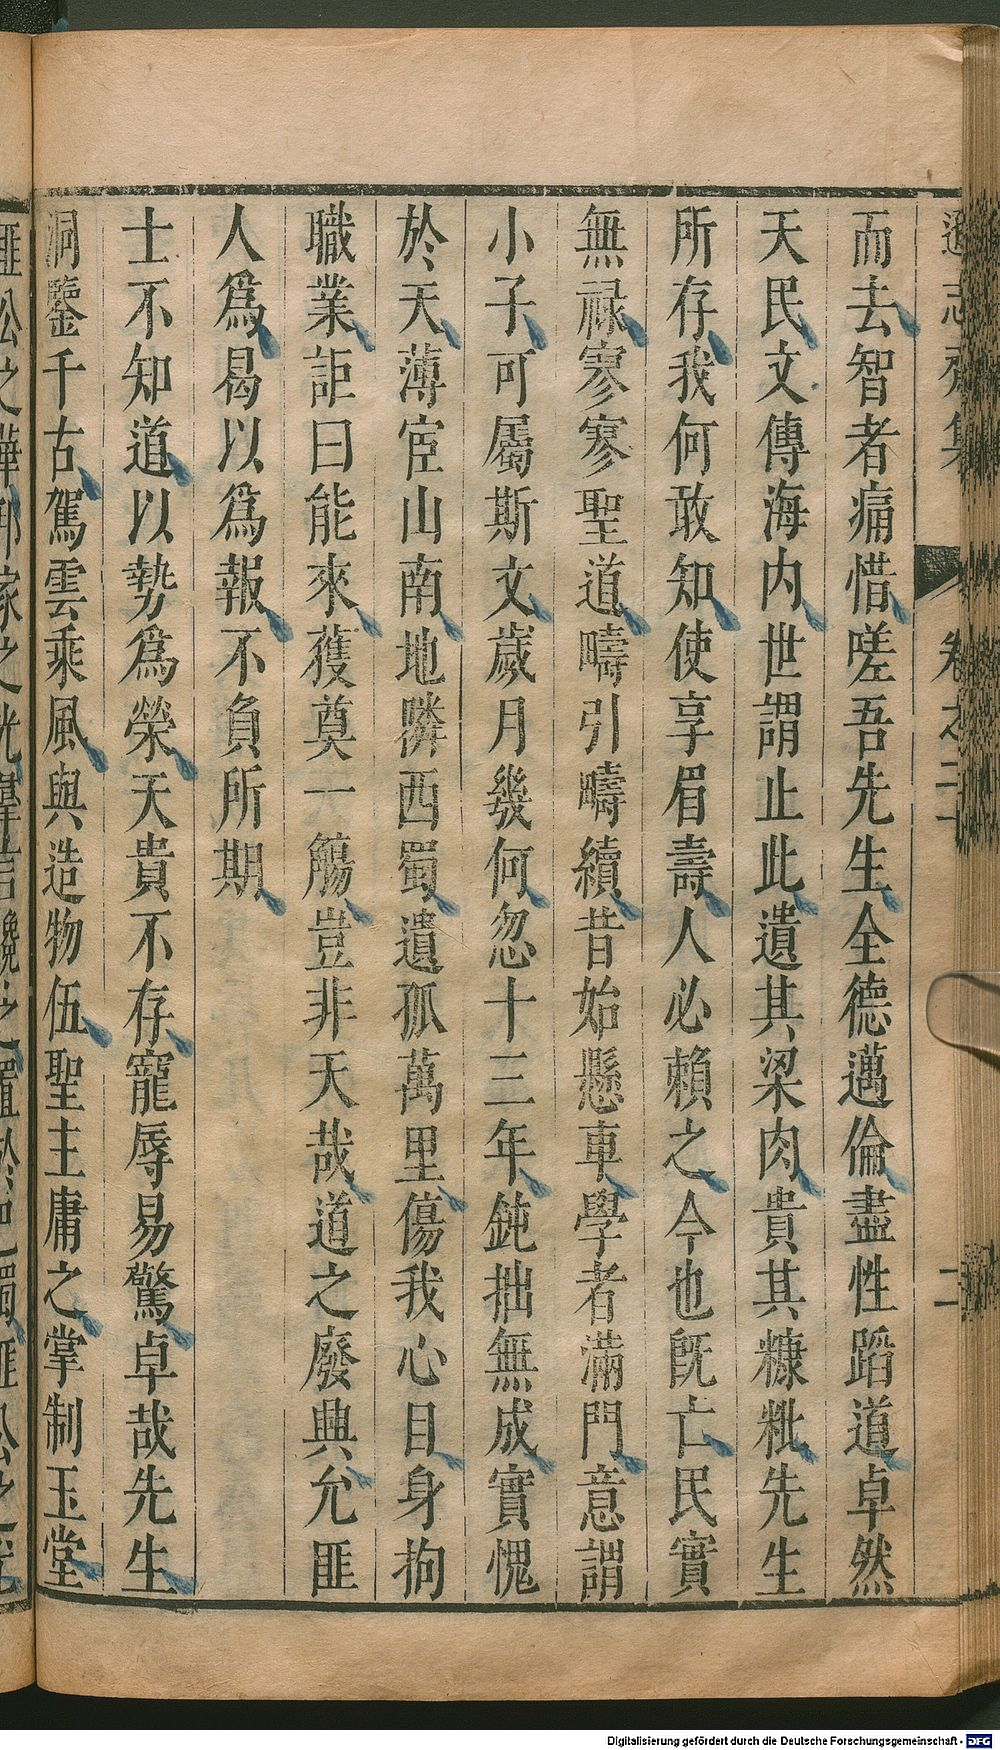 遜志齋集 卷之二十 二
而去智者痛惜嗟吾先生全德邁倫盡性蹈道卓然
天民文傳海内世謂止此遺其梁肉貴其糠粃先生
所存我何敢知使享眉壽人必賴之今也旣亡民實
無祿寥寥聖道疇引疇續昔始懸車學者滿門意謂
小子可屬斯文歲月幾何忽十三年鈍拙無成實愧
於天薄宦山南地隣西蜀遺孤萬里傷我心目身拘
職業詎曰能來獲奠一觴豈非天哉道之廢興允匪
人爲曷以爲報不負所期
士不知道以勢爲榮天貴不存寵辱易驚卓哉先生
洞鑒千古駕雲乘風與造物伍聖主庸之掌制玉堂
Digitalisierung gefördert durch die Deutsche Forschungsgemeinschaft - DFG